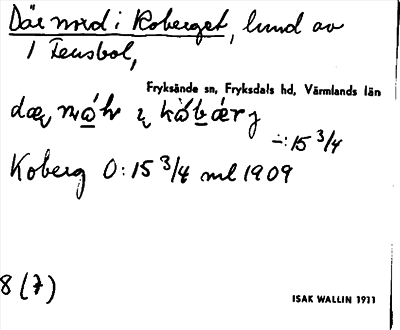 Där nord i Koberget, lund av
1 Tensbol,
Fryksände sn, Fryksdals hd, Värmlands län
÷: 15 3/4
Koberg O: 15 3/4 ml 1909
8 (7)
ISAK WALLIN 1911